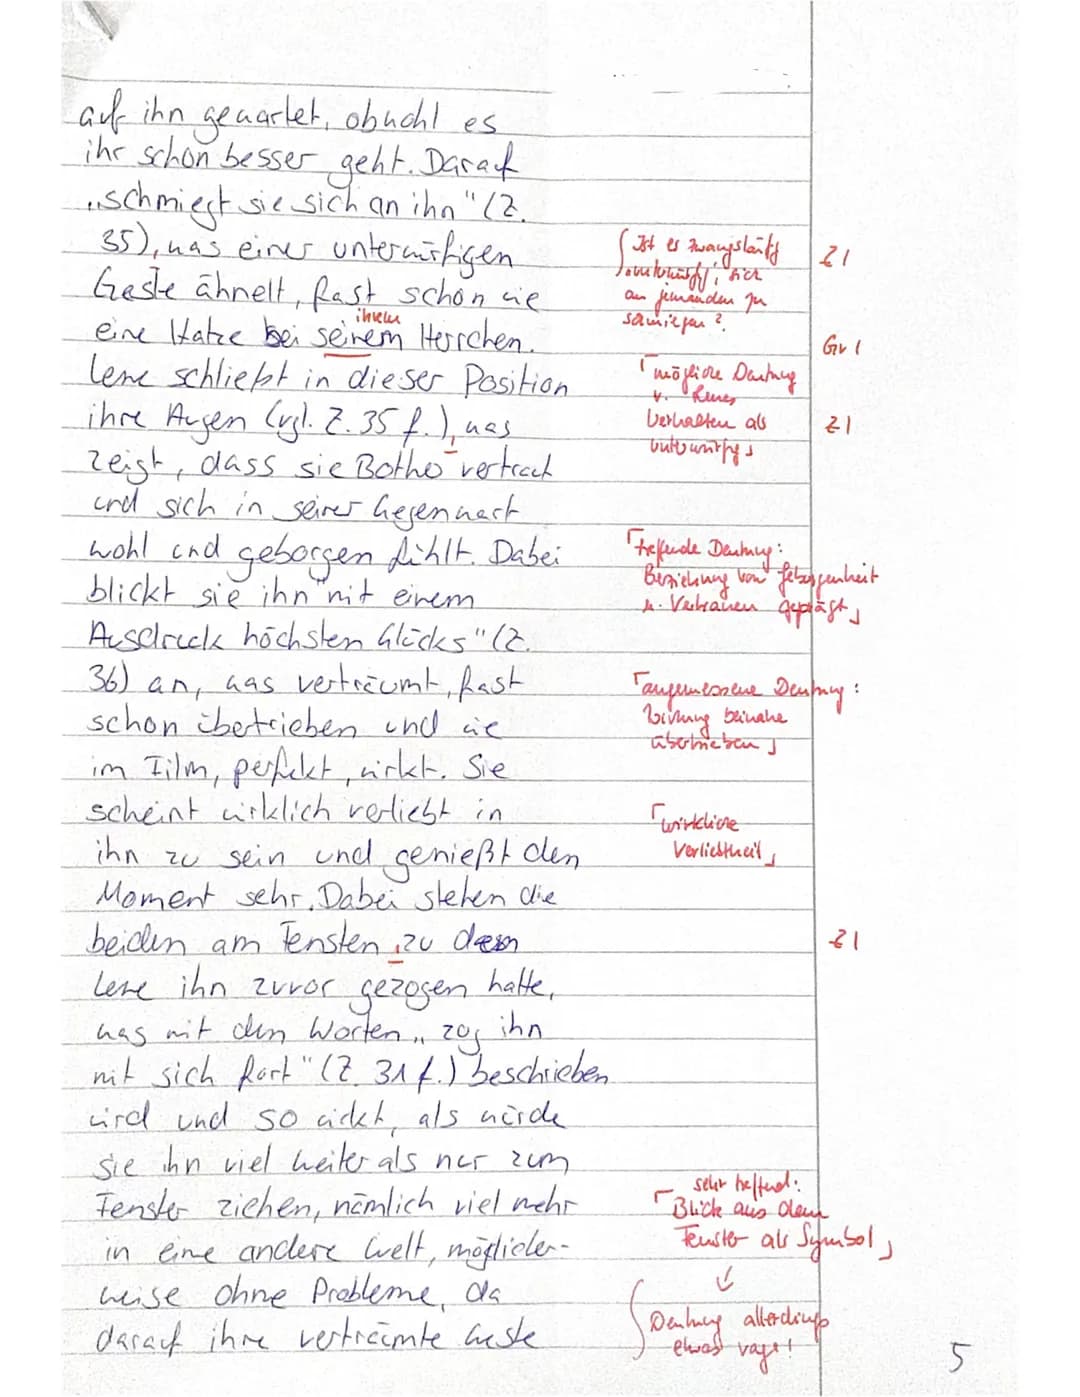 auf ihn gewartet, obwohl es
ihr schon besser geht. Darauf
„schmiegt sie sich an ihn" (Z.
35), was einer unterwürfigen
Geste ähnelt, fast schon wie
eine Katze bei seinem Herrchen.
ihrem
Lene schließt in dieser Position
ihre Augen (vgl. Z. 35 f.), was
zeigt, dass sie Botho vertraut
und sich in seiner Gegenwart
wohl und geborgen fühlt. Dabei
blickt sie ihn "mit einem
Ausdruck höchsten Glücks" (Z.
36) an, was verträumt, fast
schon übertrieben und wie
im Film, perfekt, wirkt. Sie
scheint wirklich verliebt in
ihn zu sein und genießt den
Moment sehr. Dabei stehen die
beiden am Fenster, zu dem
Lene ihn zuvor gezogen hatte,
was mit den Worten „zog ihn
mit sich fort" (Z. 31 f.) beschrieben
wird und so wirkt, als würde
sie ihn viel weiter als nur zum
Fenster ziehen, nämlich viel mehr
in eine andere Welt, möglicher-
weise ohne Probleme, da
darauf ihre verträumte Geste
Ist es zwangsläufig
unterwürfig, sich
an jemanden zu
schmiegen?
Z1
Gr 1
mögliche Deutung
v. Lenes
Verhalten als
unterwürfig
Z1
treffende Deutung:
Beziehung von Geborgenheit
u. Vertrauen geprägt
angemessene Deutung:
Wirkung beinahe
übertrieben
wirkliche
Verliebtheit
Z1
sehr treffend:
Blick aus dem
Fenster als Symbol
↓
Deutung allerdings
etwas vage!
5